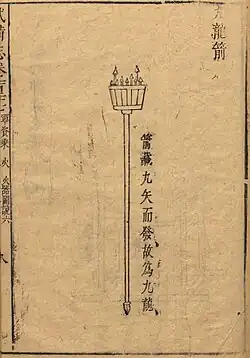 九龍箭
筩藏九矢而發故為九龍
武備志卷一百二十七 軍資乘 火 火器圖說六 八